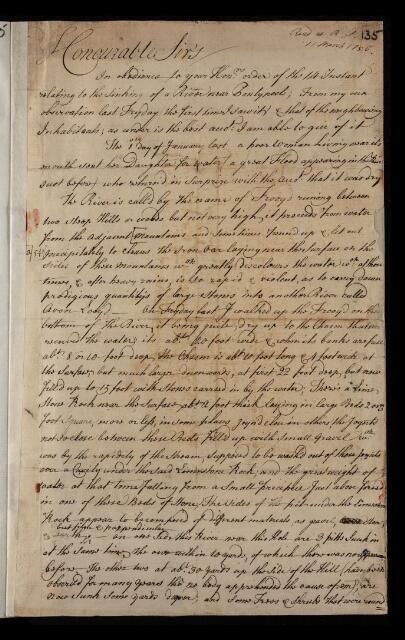 135
Read at R. S.
11 March 1756.
Honourable Sirs
In obedience to your Honrs order of the 14 Instant
relating to the Sinking of a River near Pontypool; From my own
observation last Fryday the first time I saw it & that of the neighbouring
Inhabitants; as under is the best acct I am able to give of it
The 1st day of January last a poor Woman living near its
mouth sent her Daughter for water (a great Flood appearing in the
just before) who returnd in Surprize with the acct that it was dry
The River is calld by the name of Frooyd runing between
two steep Hills or woods but not very high, it proceeds from water
from the Adjacent Mountains and Sometimes Pound up & let out
precipitately to cleans the Iron Oar laying near the Surface on the
Sides of those Mountains wch greatly discolours the water at those
times, & after heavy rains is so rapid & violent, as to carry down
prodigious quantitys of large Stones into another River called
Avon Loyd. On Fryday last I walked up the Frooyd on the
bottom of the River, it being quite dry up to the Chasm that
received the water; its abt 20 foot wide & when its banks are full
abt 8 or 10 foot deep. The Chasm is abt 10 foot long & 4 foot wide at
the Surface, but much larger downwards, at first 22 foot deep, but now
filld up to 15 foot with Stones carried in by the water; There's a Lime
Stone Rock near the Surface abt 2 foot thick laying in large Beds 2 or 3
Foot Square, more or less, in some places Joynd close in others the Joynts
not so close between those Beds filld up with Small Gravel wch
ious by the rapidety of the Stream Supposed to be washed out of those Joynts
over a Cavity under the said Limestone Rock, and the great weight of
water at that time falling from a Small precipice Just above forced
in one of those Beds of Stone, The Sides of the pit under the Limestone
Rock appear to be compos'd of different materials as gravel, Stone
but firm & perpendicular
On one side this River near this Hole are 3 pits Sunk in
at the Same time The one within 10 yards, of which there was no appearance
before The other two at abt 30 yards up the Side of the Hill (has been
observd for many years tho no body apprehended the cause of em) are
now Sunk Some yards deeper and Some Trees & Shrubs that were round